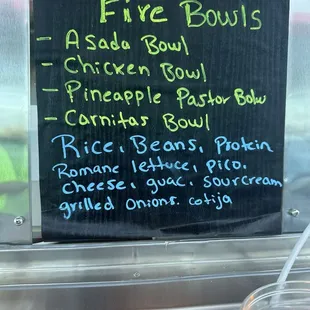 Fire Bowls
- Asada Bowl
- Chicken Bowl
- Pineapple Pastor Bolw
- Carnitas Bowl
Rice, Beans, Protein
Romane lettuce, pico,
cheese, guac, sour cream
grilled onions. cotija